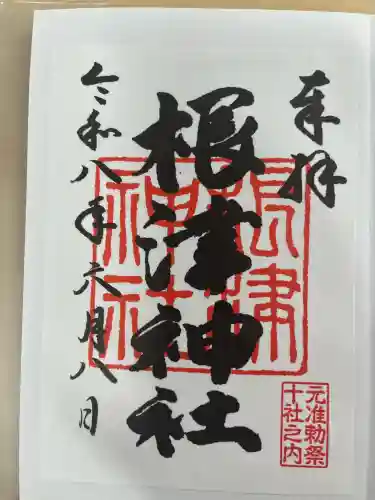 奉拝
根津神社
根津神社
令和八年六月八日
元准勅祭
十社之内